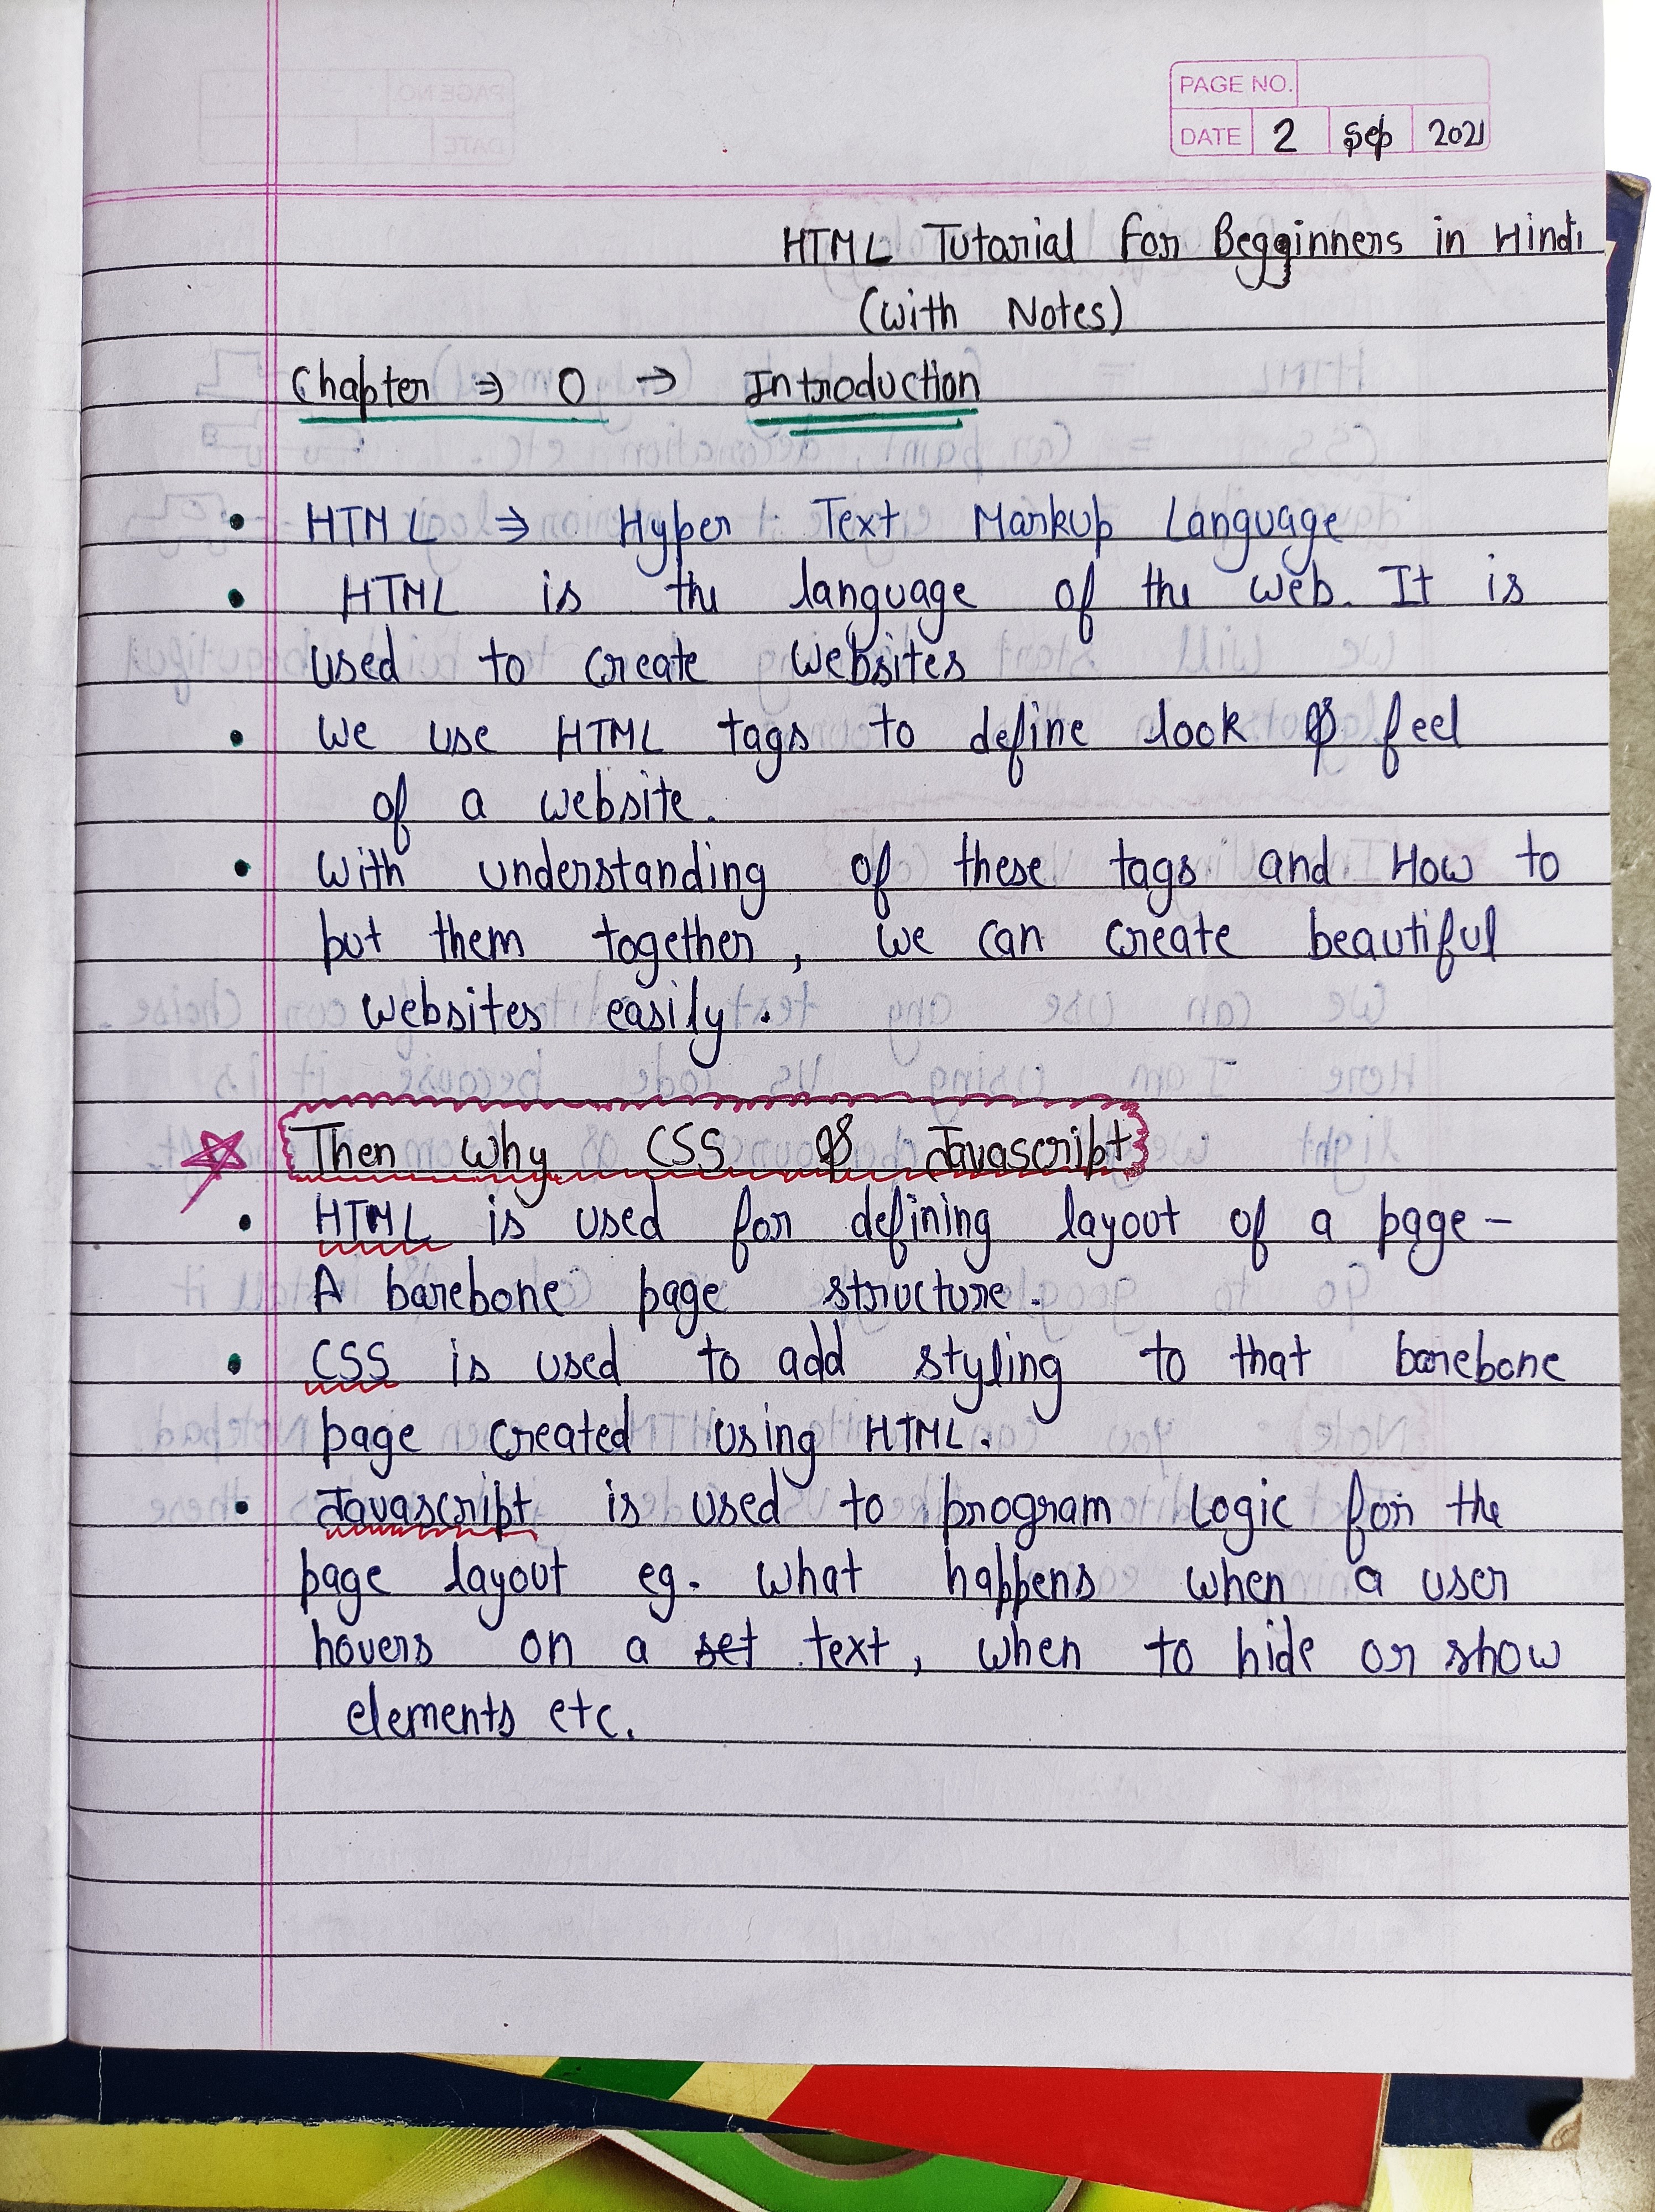 PAGE NO.
DATE 2 Sep 2021
HTML Tutorial For Begginners in Hindi
(With Notes)
Chapter ⇒ 0 → Introduction
• HTML ⇒ Hyper Text Markup Language
• HTML is the language of the web. It is
used to create websites
• We use HTML tags to define look & feel
of a website.
• With understanding of these tags and How to
put them together, we can create beautiful
websites easily.
Then Why CSS & Javascript
• HTML is used for defining layout of a page -
A barebone page structure.
• CSS is used to add styling to that barebone
page created using HTML.
• Javascript is used to program logic for the
page layout eg. what happens when a user
hovers on a set text, when to hide or show
elements etc.